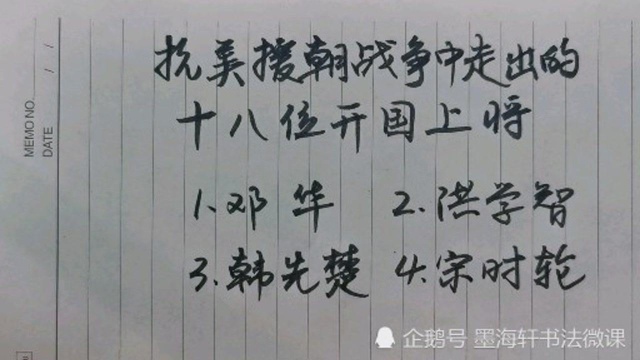 MEMO NO.
DATE / /
抗美援朝战争中走出的
十八位开国上将
1.邓华 2.洪学智
3.韩先楚 4.宋时轮
企鹅号 墨海轩书法微课